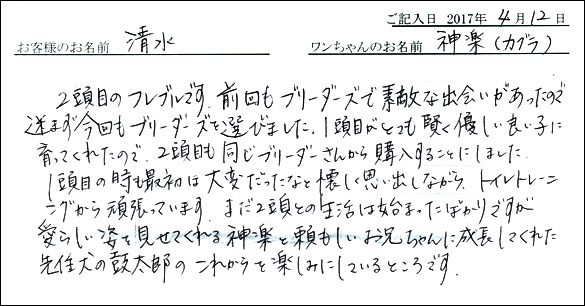 ご記入日 2017年 4月12日
お客様のお名前 清水 ワンちゃんのお名前 神楽(カグラ)
2頭目のフレブルです。前回もブリーダーズで素敵な出会いがあったので
迷まず今回もブリーダーズを選びました。1頭目がとても賢く優しい良い子に
育ってくれたので、2頭目も同じブリーダーさんから購入することにしました。
1頭目の時も最初は大変だったなと懐しく思い出しながら、トイレトレーニ
ングから頑張っています。まだ2頭との生活は始まったばかりですが
愛らしい姿を見せてくれる神楽と頼もしいお兄ちゃんに成長してくれた
先住犬の鼓太郎のこれからを楽しみにしているところです。